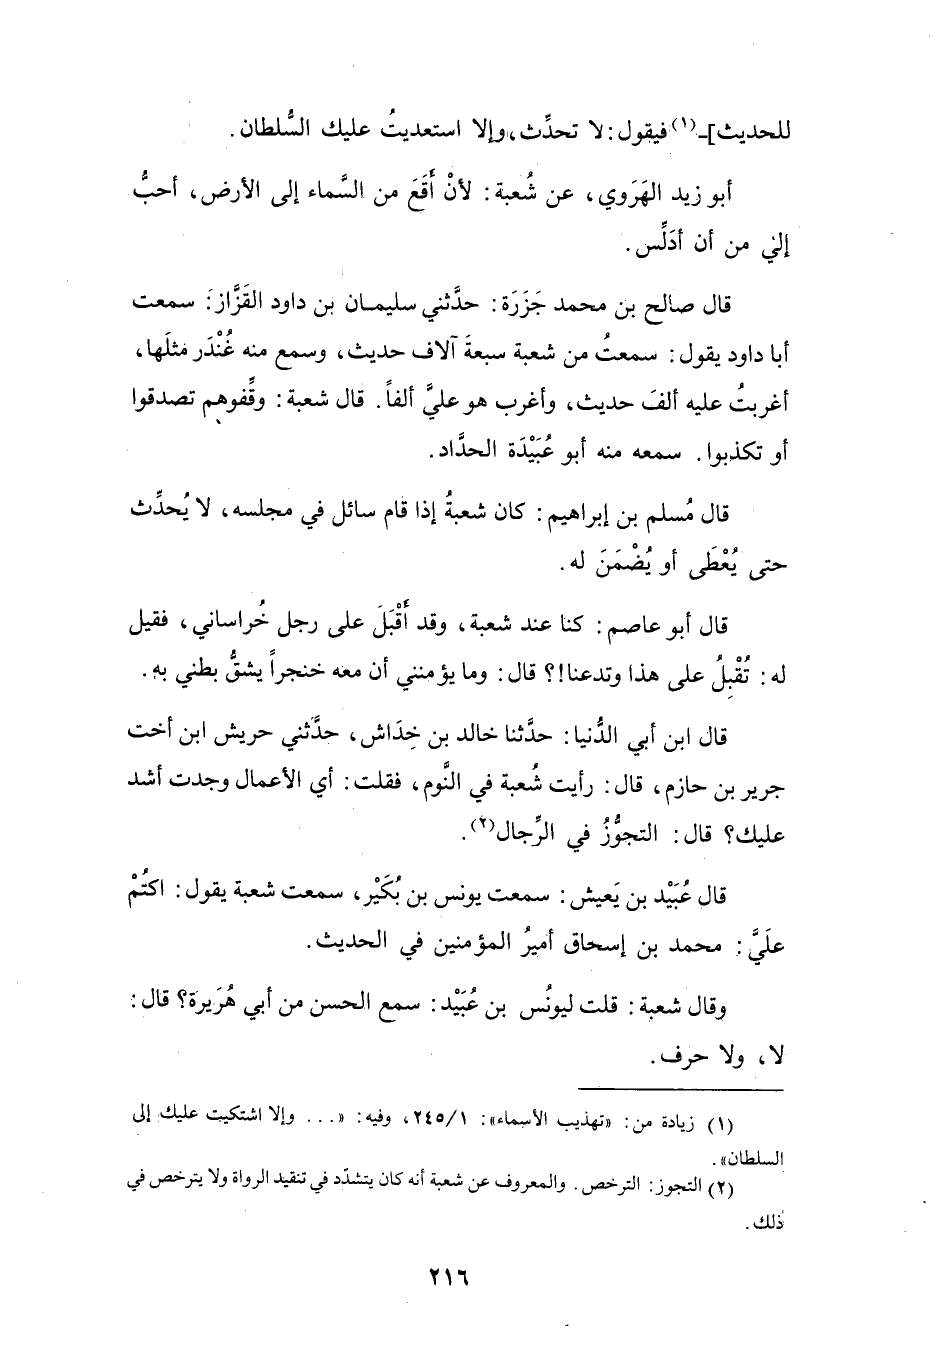 للحديث]ـ(١) فيقول: لا تحدِّث، وإلا استعديتُ عليك السُّلطان.
أبو زيد الهَرَوي، عن شُعبة: لأنْ أَقَعَ من السَّماء إلى الأرض، أحبُّ
إليَّ من أن أدَلِّس.
قال صالح بن محمد جَزَرَة: حدَّثني سليمان بن داود القَزَّاز: سمعت
أبا داود يقول: سمعتُ من شعبة سبعةَ آلاف حديث، وسمع منه غُنْدَر مثلَها،
أغربتُ عليه ألفَ حديث، وأغرب هو عليَّ ألفاً. قال شعبة: وقِّفوهم تصدقوا
أو تكذبوا. سمعه منه أبو عُبَيْدَة الحدَّاد.
قال مُسلم بن إبراهيم: كان شعبةُ إذا قام سائل في مجلسه، لا يُحدِّث
حتى يُعْطَى أو يُضْمَنَ له.
قال أبو عاصم: كنا عند شعبة، وقد أَقْبَلَ على رجل خُراساني، فقيل
له: تُقْبِلُ على هذا وتدعنا!؟ قال: وما يؤمنني أن معه خنجراً يشقُّ بطني به.
قال ابن أبي الدُّنيا: حدَّثنا خالد بن خِدَاش، حدَّثني حريش ابن أخت
جرير بن حازم، قال: رأيت شُعبة في النَّوم، فقلت: أي الأعمال وجدت أشد
عليك؟ قال: التجوُّزُ في الرِّجال(٢).
قال عُبَيْد بن يَعيش: سمعت يونس بن بُكَيْر، سمعت شعبة يقول: اكتُمْ
علَيَّ: محمد بن إسحاق أميرُ المؤمنين في الحديث.
وقال شعبة: قلت ليونُس بن عُبَيْد: سمع الحسن من أبي هُرَيرة؟ قال:
لا، ولا حرف.
(١) زيادة من: «تهذيب الأسماء»: ٢٤٥/١، وفيه: «... وإلا اشتكيت عليك إلى
السلطان».
(٢) التجوز: الترخص. والمعروف عن شعبة أنه كان يتشدّد في تنقيد الرواة ولا يترخص في
ذلك.
٢١٦